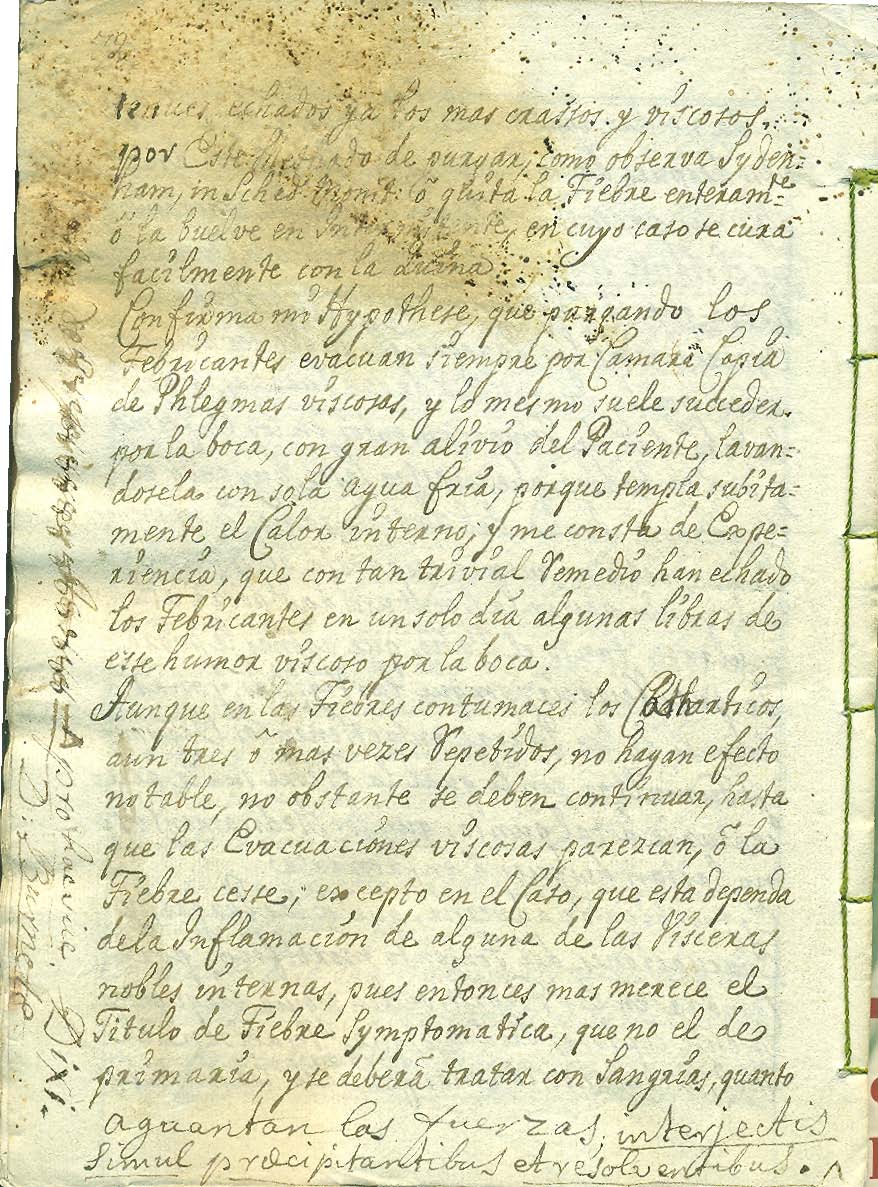 tenues, echados ya los mas crassos y viscosos,
por Este de purgar, como observa Syden=
ham, in Sched. monit. ô quita la Fiebre enteram.te
ô la buelve en Intermittente, en cuyo caso se cura
facilmente con la Quina
Confirma mi Hypothese, que purgando los
Febricantes evacuan siempre por Camara Copia
de Phlegmas viscosas, y lo mesmo suele succeder
por la boca, con gran alivio del Paciente, lavan=
dosela con sola agua fria, porque templa subita=
mente el Calor interno, y me consta de Expe=
riencia, que con tan trivial Remedio han echado
los Febricantes en un solo dia algunas libras de
esse humor viscoso por la boca.
Aunque en las Fiebres contumaces los Catharticos,
aun tres ô mas vezes Repetidos, no hagan efecto
notable, no obstante se deben continuar, hasta
que las Evacuaciones viscosas parezcan, ô la
Fiebre cesse, excepto en el Caso, que esta dependa
de la Inflamacion de alguna de las Visceras
nobles internas, pues entonces mas merece el
Titulo de Fiebre Symptomatica, que no el de
primaria, y se deberâ tratar con Sangrias, quanto
aguantan las fuerzas, interjectis
simul præcipitantibus et resolventibus.
Dixi.
D.r Burneto